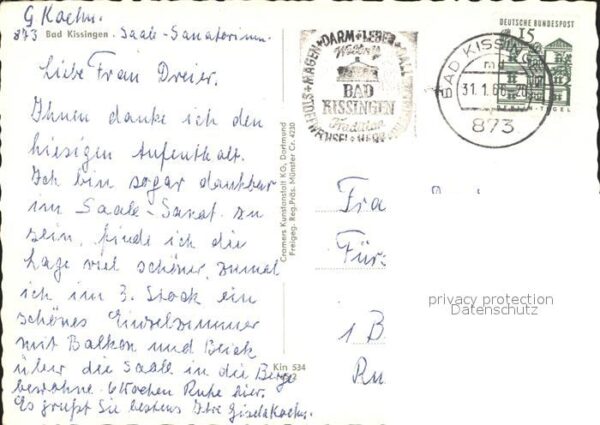 G Koehn.
873 Bad Kissingen. Saale-Sanatorium.
Liebe Frau Dreier.
Ihnen danke ich den
hiesigen Aufenthalt.
Ich bin sogar dankbar
im Saale-Sanat. zu
sein, finde ich die
Lage viel schöner, zumal
ich im 3. Stock ein
schönes Einzelzimmer
mit Balkon und Blick
über die Saale in die Berge
bewohne. 6 Wochen Ruhe hier.
Es grüßt Sie bestens Ihre Gisela Koehn.
Cramers Kunstanstalt KG, Dortmund
Freigeg. Reg. Präs. Münster Cr. 4230
Kin 534
MAGEN + DARM + LEBER + GALLE
BAD
KISSINGEN
Tradition
STOFFWECHSEL + HERZ
BAD KISSINGEN
31.1.66-20
873
DEUTSCHE BUNDESPOST
15
BERLIN-TEGEL
Fra
Für
1 B
Ru
privacy protection
Datenschutz